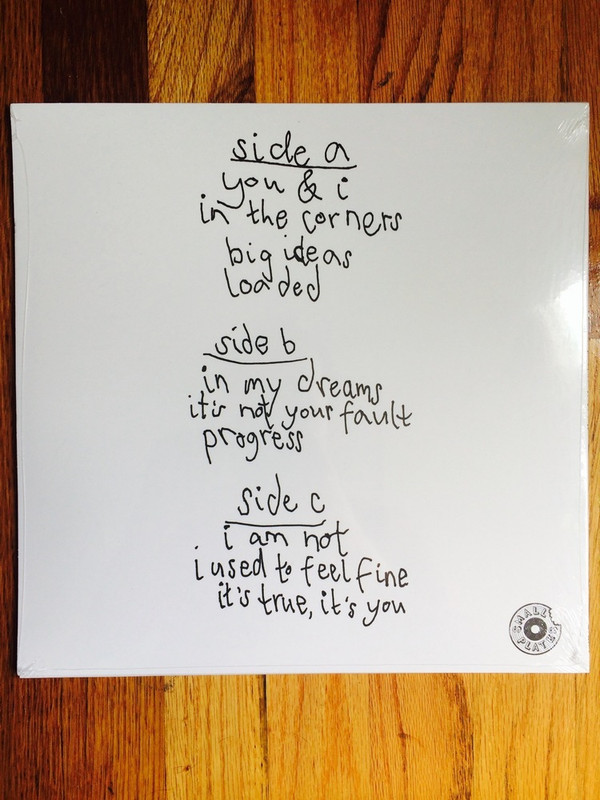 side a
you & i
in the corners
big ideas
loaded
side b
in my dreams
it's not your fault
progress
side c
i am not
i used to feel fine
it's true, it's you
SMALL
PLATE